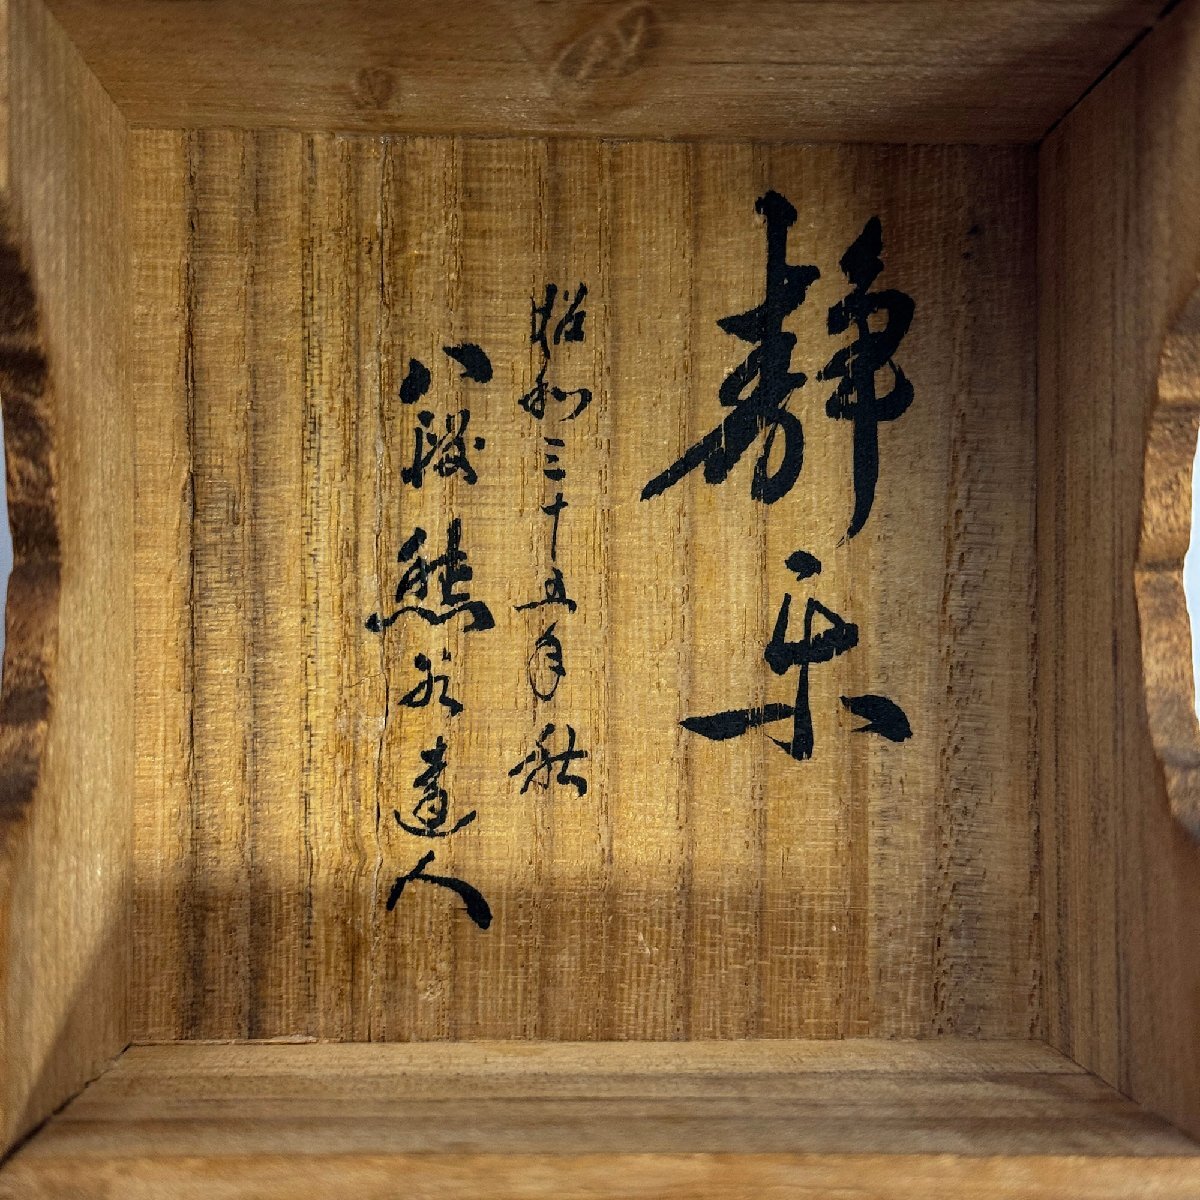 静楽
昭和三十五年秋
八段熊谷達人